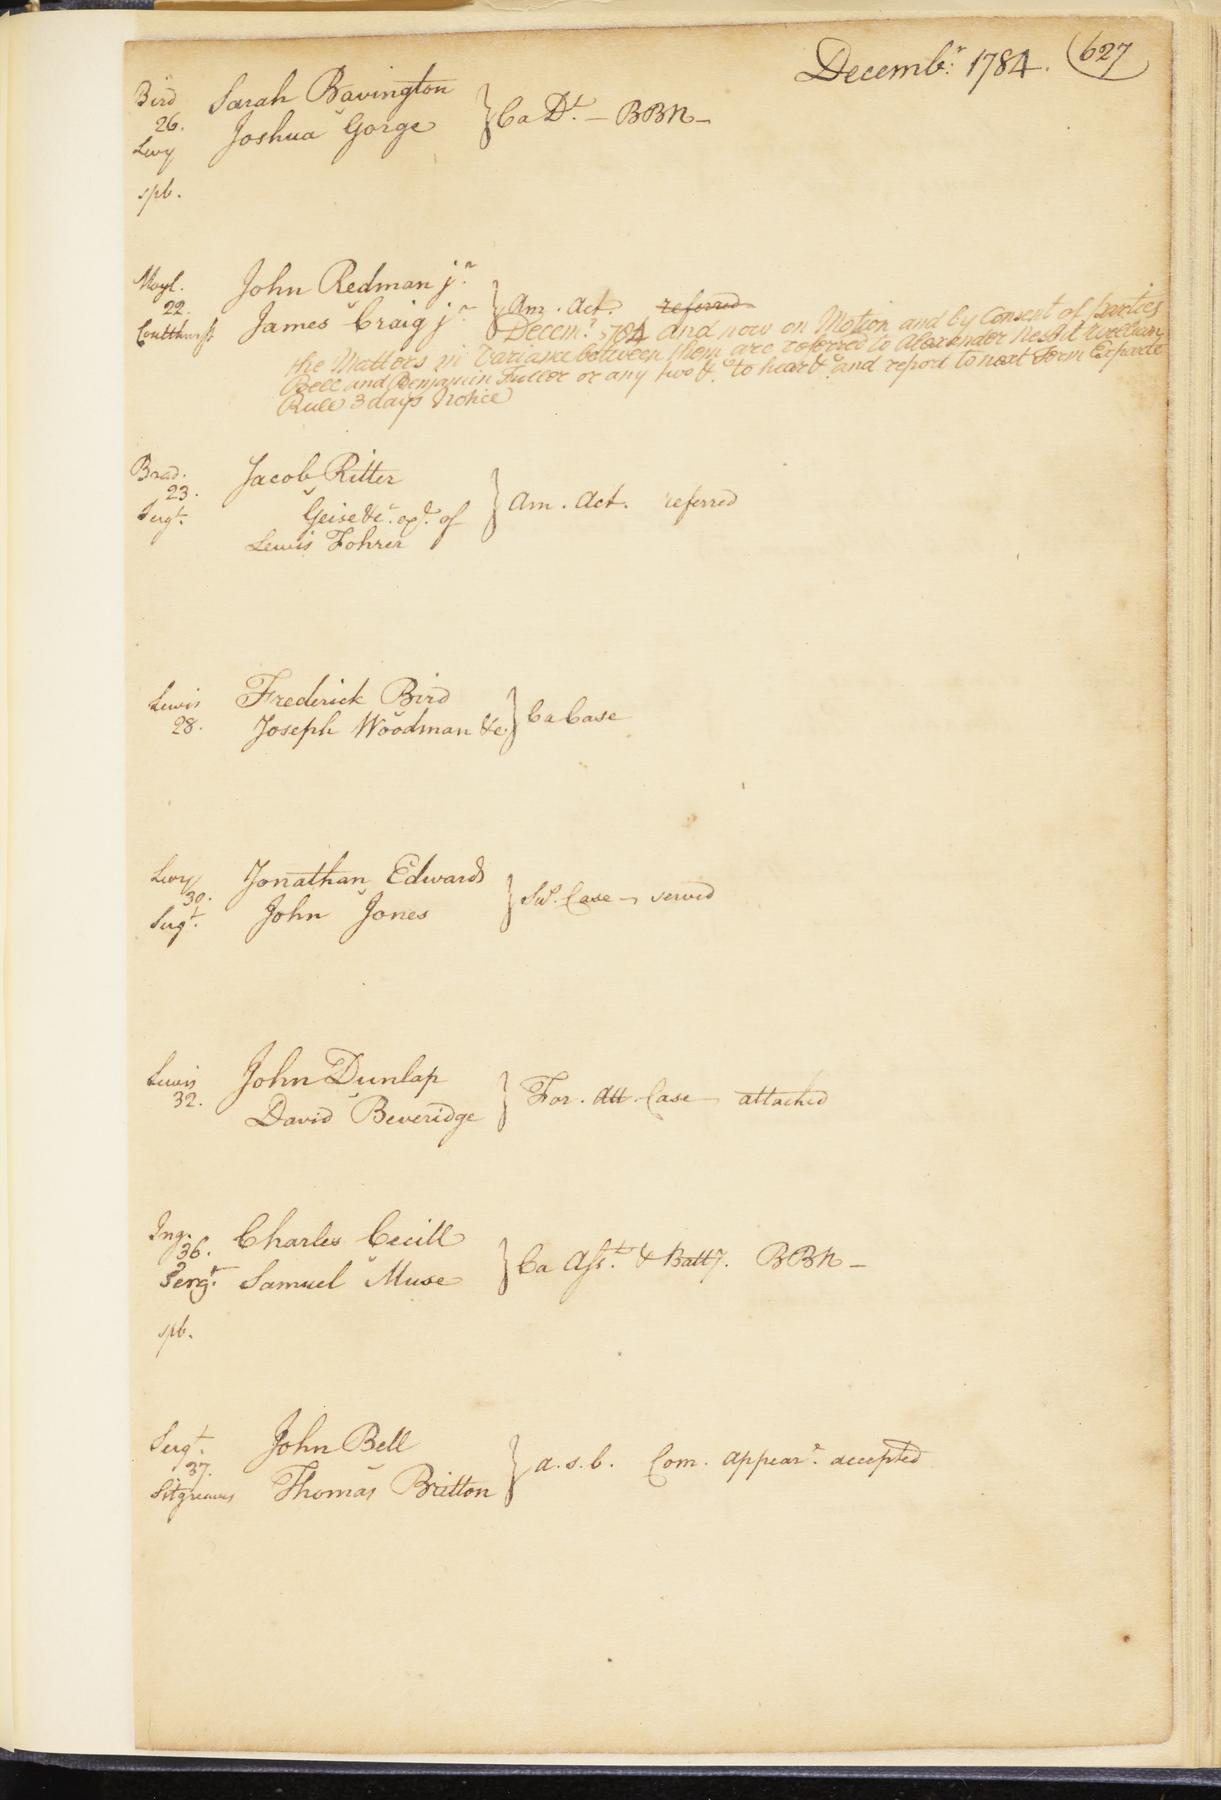 Decemb.r 1784. 627
Bird Sarah Bavington
26. v } Ca Dt. – BBN –
Levy Joshua Gorge
spb.
Moyl. John Redman jr.
22. v } Am. Act. referred
Coultthurst James Craig jr.
Decem.r 1784 and now on Motion and by Consent of parties
the Matters in Variance between them are referred to Alexander Nesbit William
Bell and Benjamin Fuller or any two &c. to hear &c. and report to next Term Exparte
Rule 3 days Notice
Brad. Jacob Ritter
23. v } Am. Act. referred
Sergt. Geise &c. exr. of
Lewis Fohrer
Lewis Frederick Bird
28. v } Ca Case
Joseph Woodman &c.
Levy Jonathan Edwards
30. v } Case – served
Sergt. John Jones
Lewis John Dunlap
32. v } For. Att. Case – attached
David Beveridge
Ing. Charles Cecill
36. v } Ca Asst. & Batty. BBN –
Sergt. Samuel Muse
spb.
Sergt. John Bell
37. v } a.s.b. Com. appear.e accepted
Sitgreaves Thomas Britton